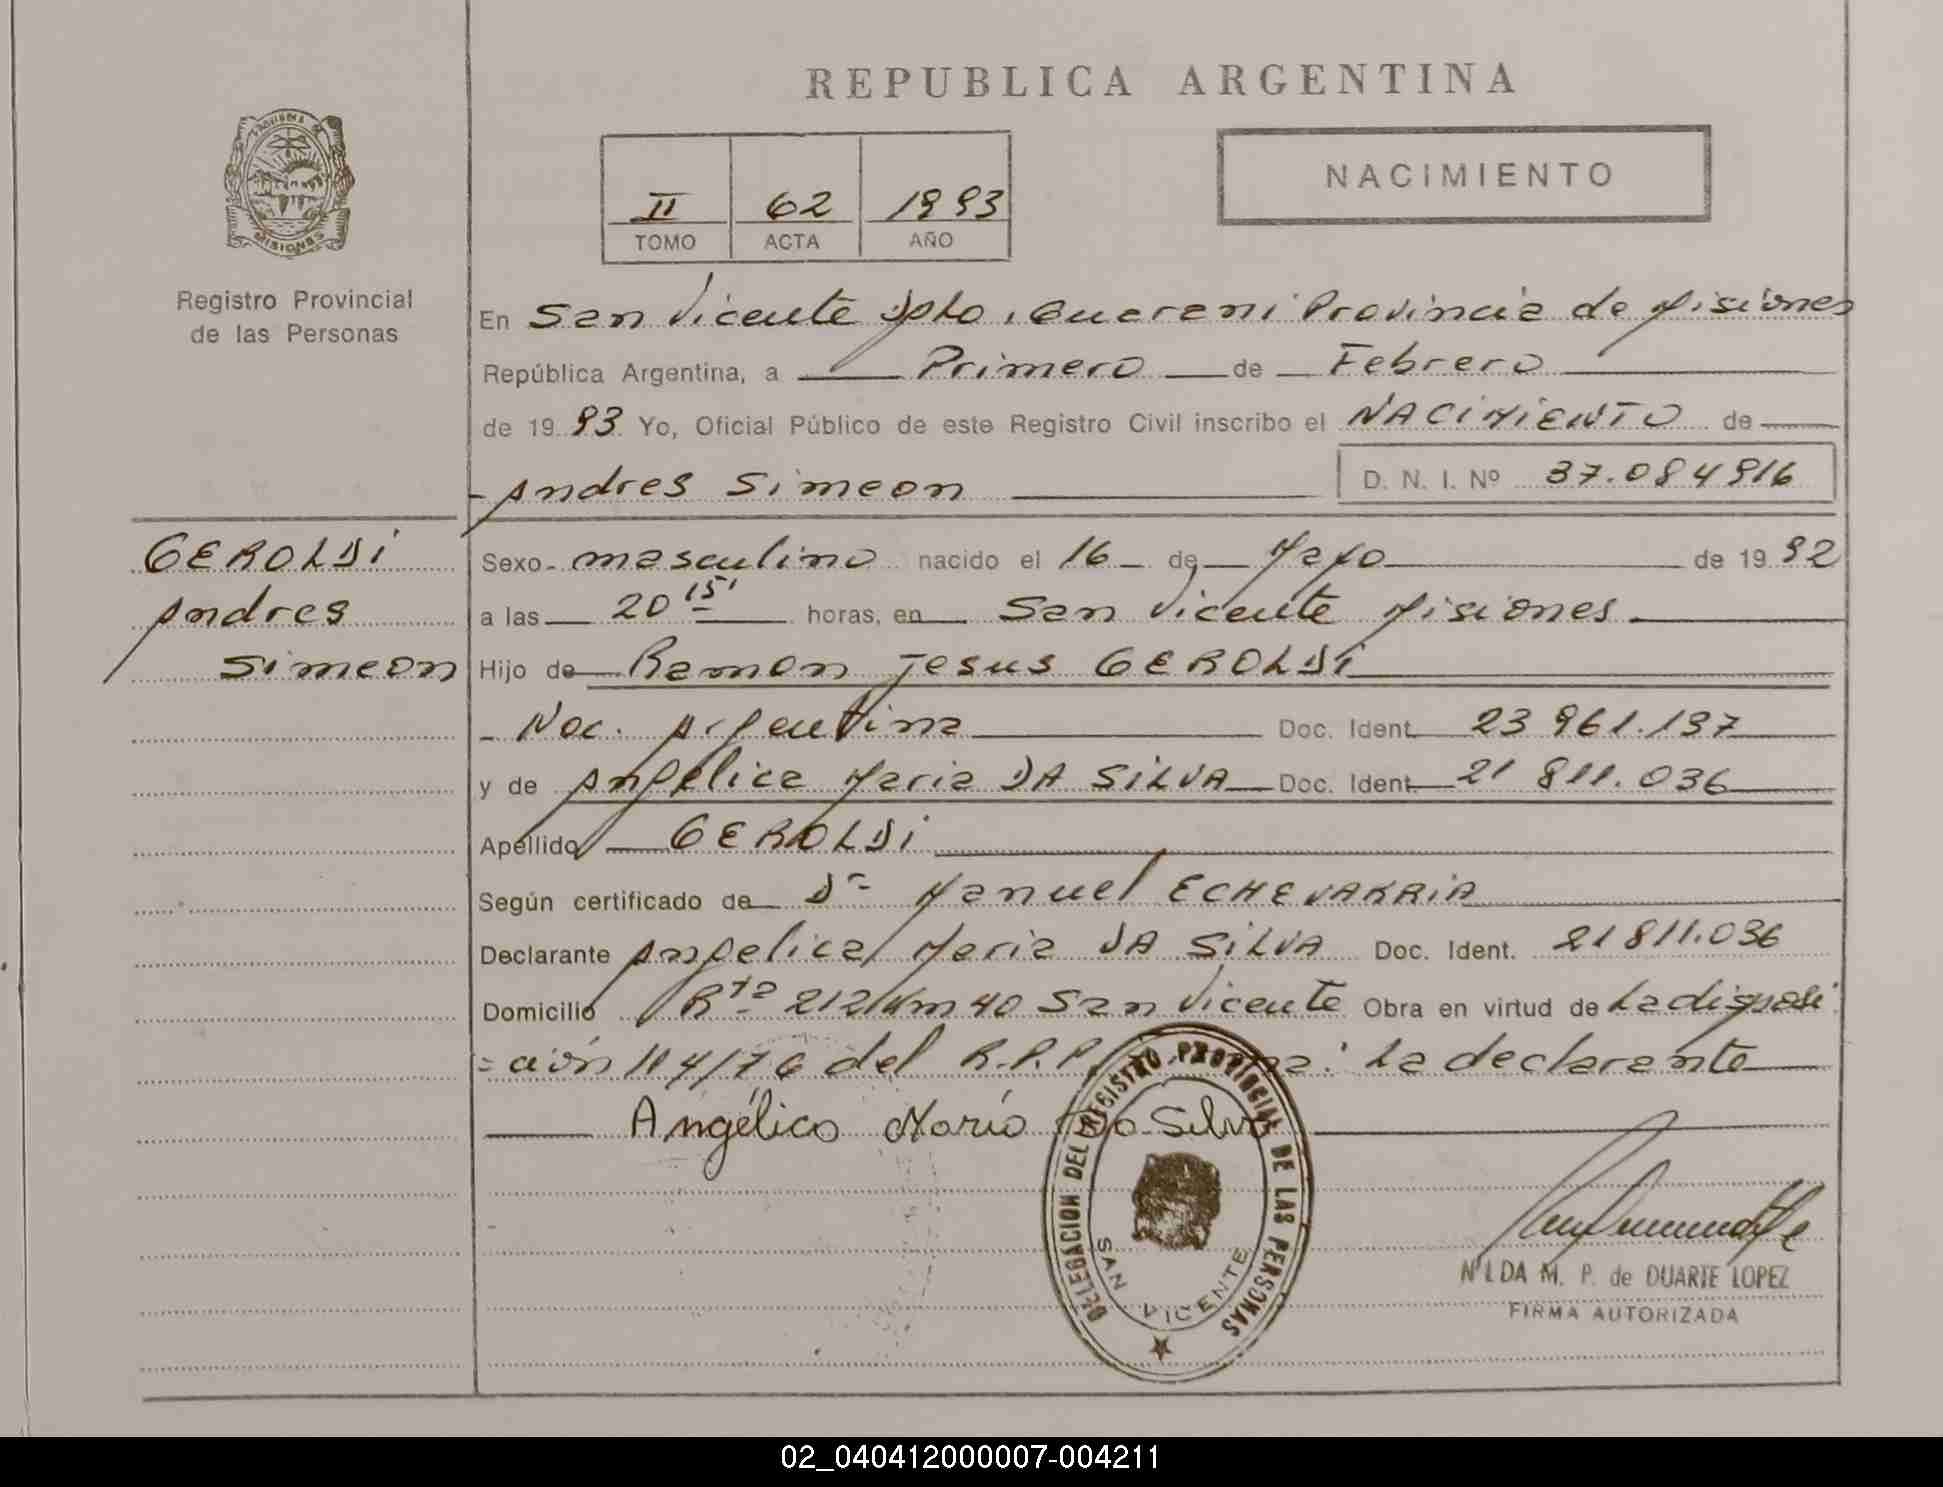 REPUBLICA ARGENTINA
NACIMIENTO
II 62 1993
TOMO ACTA AÑO
MISIONES
Registro Provincial
de las Personas
En San Vicente Dpto. Guarani Provincia de Misiones
República Argentina, a Primero de Febrero
de 1993 Yo, Oficial Público de este Registro Civil inscribo el NACIMIENTO de
Andres Simeon D. N. I. Nº 37.084916
GEROLDI
Andres
Simeon
Sexo masculino nacido el 16 de Mayo de 1992
a las 20 15' horas, en San Vicente Misiones
Hijo de Ramon Jesus GEROLDI
Nac. Argentina Doc. Ident. 23 961.197
y de Angelica Maria DA SILVA Doc. Ident. 21 811.036
Apellido GEROLDI
Según certificado de Dr Manuel ECHEVARRIA
Declarante Angelica Maria DA SILVA Doc. Ident. 21 811.036
Domicilio Rta 212 Km 40 San Vicente Obra en virtud de La disposi
=ción 114/76 del R.P.P. La declarante
Angélica María Da Silva
DELEGACION DEL REGISTRO PROVINCIAL DE LAS PERSONAS
SAN VICENTE
NILDA M. P. de DUARTE LOPEZ
FIRMA AUTORIZADA
02_040412000007-004211